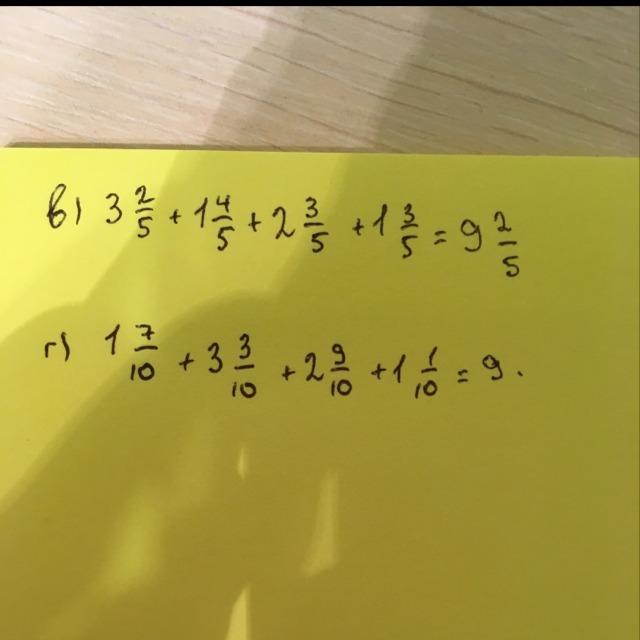 в) 3 2/5 + 1 4/5 + 2 3/5 + 1 3/5 = 9 2/5
г) 1 7/10 + 3 3/10 + 2 9/10 + 1 1/10 = 9.